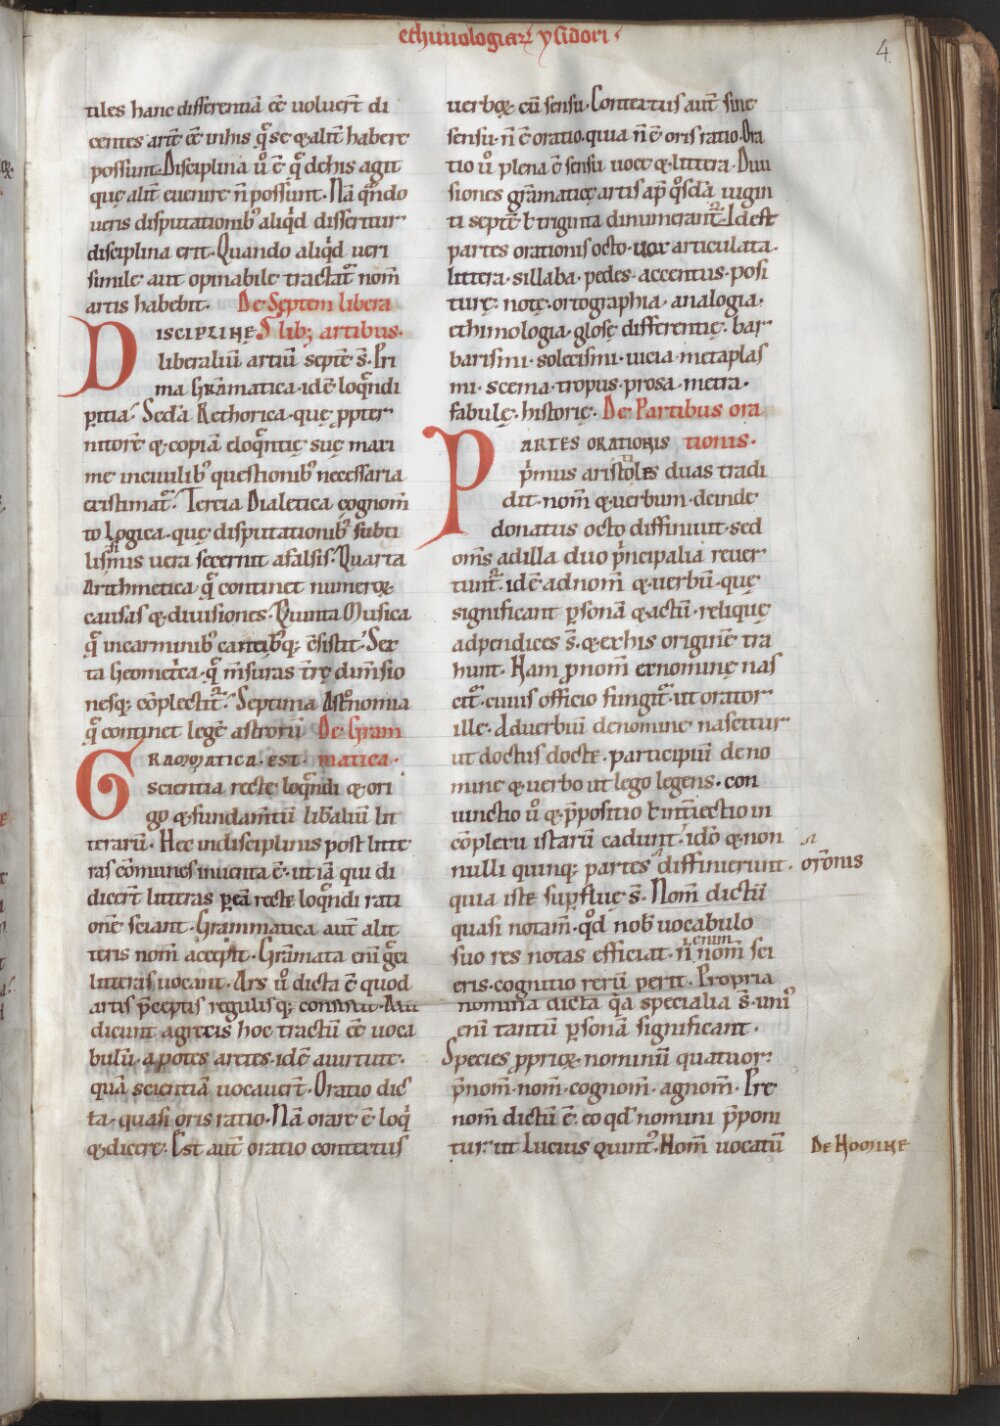 ethimologiarꝝ ysidori·
4
tiles hanc differentiā eē uoluer̄t di
centes artē eē in his q̄ se & alit̄ habere
possunt· Disciplina u̾ ē q̄ dehis agit
quę alit̄ euenire n̄ possunt· Nā q̄ndo
ueris disputationib; aliq̇d disseritur
disciplina erit· Quando aliq̇d ueri
simile aut opinabile tractat̄ nom̄
artis habebit· De Septem libera
DISCIPLINĘ S lib; artibus·
liberaliū artiū septē s̄· Pri
ma Grāmatica· idē loq̄ndi
ꝑitia· Sc̄da Rethorica· quę ꝓpter
nitorē & copiā eloq̄ntię suę maxi
me inciuilib; questionib; necessaria
existimat̄· Tercia Dialetica cognom̄
to Logica· quę disputationib; subti
lissimis uera secernit a falsis· Quarta
Arithmetica q̄ continet numeroꝝ
causas & diuisiones· Quinta Musica
q̄ in carminib; cantibq; c̄sistit· Sex
ta Geometrica· q̄ m̄suras tr̄ę dim̄sio
nesq; cōplectit̄· Septima Astronomia
q̄ continet legē astrorū De Gram
GRAMMATICA· EST· matica·
scientia recte loq̄ndi & ori
go & fundam̄tū lib̄aliū lit
terarū· Hec in disciplinis post litte
ras cōmunes inuenta ē· ut iā qui di
dicer̄t litteras ꝑ eā recte loq̄ndi rati
onē sciant· Grammatica aut̄ a lit
teris nom̄ accepit· Grāmata eni̅ gręci
litteras uocant· Ars u̾ dicta ē quod
artis p̄ceptis regulisq; consistit· Alii
dicunt a grecis hoc tractū eē uoca
bulū· apo tes aretes· idē a uirtute·
quā scientiā uocauer̄t· Oratio dic
ta· quasi oris ratio· Nā orare ē loq̇
& dicere· Est aut̄ oratio contextus
uerboꝝ cū sensu· Contextus aut̄ sine
sensu· n̄ ē oratio· quia n̄ ē oris ratio· Ora
tio u̾ plena ē sensu uoce & littera· Diui
siones grāmaticę artis ap̄ q̇sdā uigin
ti septē ł triginta dinumerant̄· Id est
partes orationis octo· uox articulata·
littera· sillaba· pedes· accentus· posi
turę· notę· ortographia· analogia·
ethimologia· glosę differentię· bar
barismi· soloecismi· uicia· metaplas
mi· scema· tropus· prosa· metra·
fabulę· historię· De Partibus ora
PARTES ORATIONIS tionis·
p̄mus aristotiles duas tradi
dit· nom̄ & uerbum· deinde
donatus octo diffiniuit· sed
om̄s ad illa duo p̄ncipalia reuer
tunt̄· idē ad nom̄ & uerbū· quę
significant ꝑsonā & actū· reliquę
adpendices s̄· & ex his originē tra
hunt· Nam pronom̄ ex nomine nas
cit̄· cuius officio fungit̄· ut orator
ille· Aduerbiū de nomine nascitur
ut doctus docte· participiū de no
mine & uerbo ut lego legens· con
iunctio u̾ & p̄positio ł int̄iectio in
cōplexu istarū cadunt· ido̅ & non
nulli quinq; partes diffinierunt·
orōnis
quia iste suꝑfluę s̄· Nom̄ dictū
quasi notam̄· q̇d nob̄ uocabulo
suo res notas efficiat· n̄ enim nom̄ sci
eris· cognitio rerū perit· Propria
nomina dicta q̄a specialia s̄· uni;
eni̅ tantū ꝑsonā significant·
Species ꝓprioꝝ nominū quatuor:
p̄nom̄· nom̄· cognom̄· agnom̄· Pre
nom̄ dictū ē· eo qd̄ nomini p̄poni
tur· ut Lucius quint;· Nom̄ uocatū
De Nomine